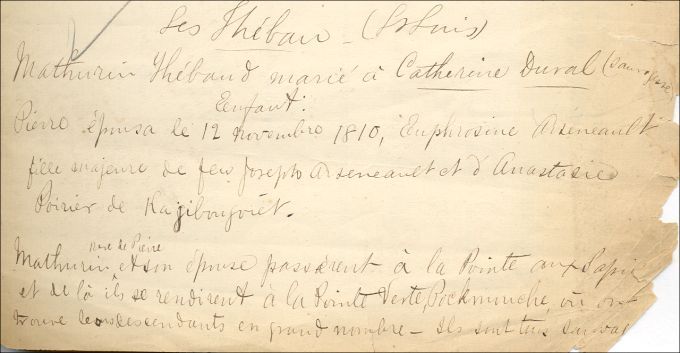 Les Thébau - (St Louis)
Mathurin Thébaud marié à Catherine Duval (sauvagesse)
Enfant:
Pierre épousa le 12 novembre 1810, Euphrosine Arseneault
fille majeure de feu Joseph Arseneault et d'Anastasie
Poirier de Kagibougoiet.
père de Pierre
Mathurin, et son épouse passèrent à la Pointe aux Sapin
et de là ils se rendirent à la Pointe Verte, Pockmouche, où on
trouve descendants en grand nombre - Ils sont tous